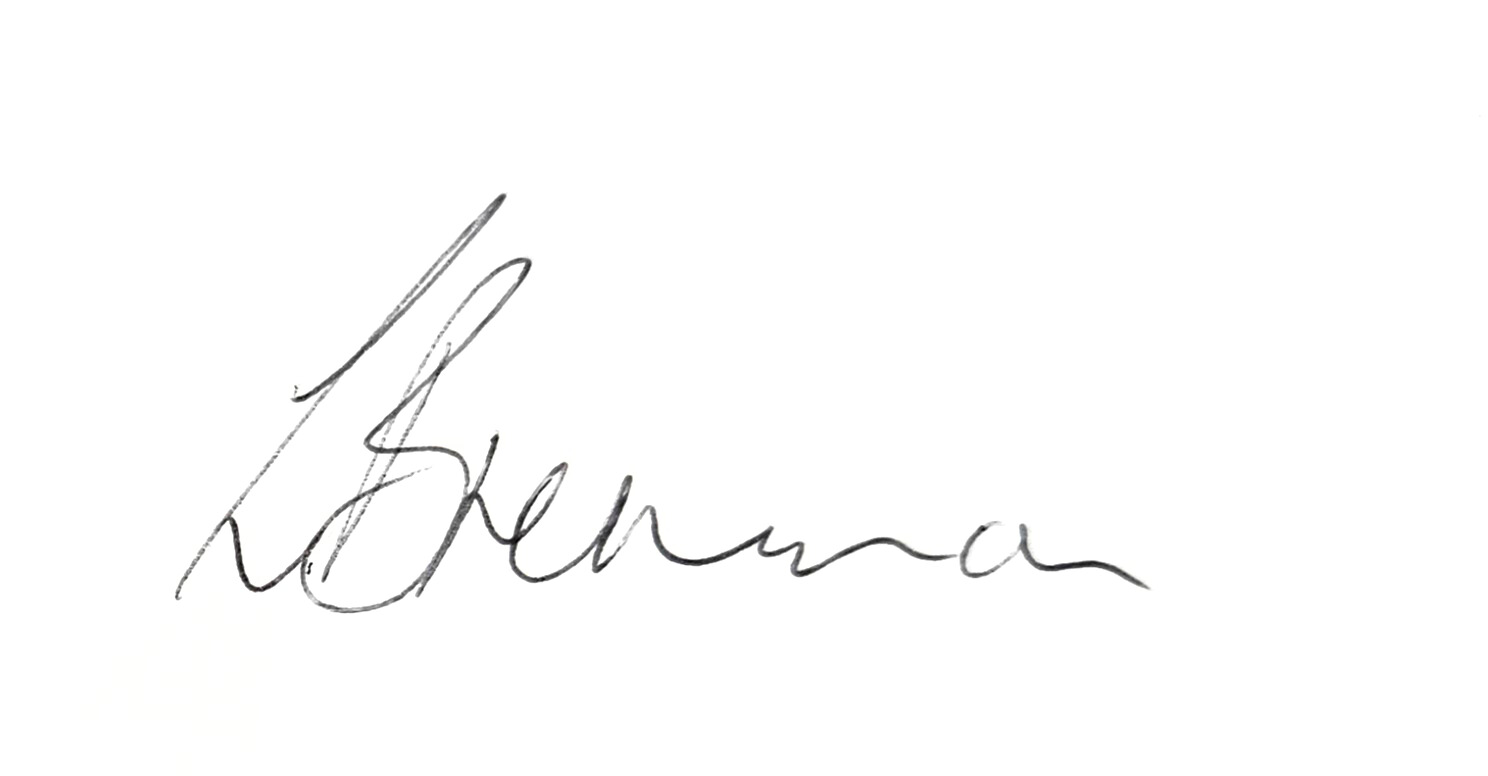 L Brennan